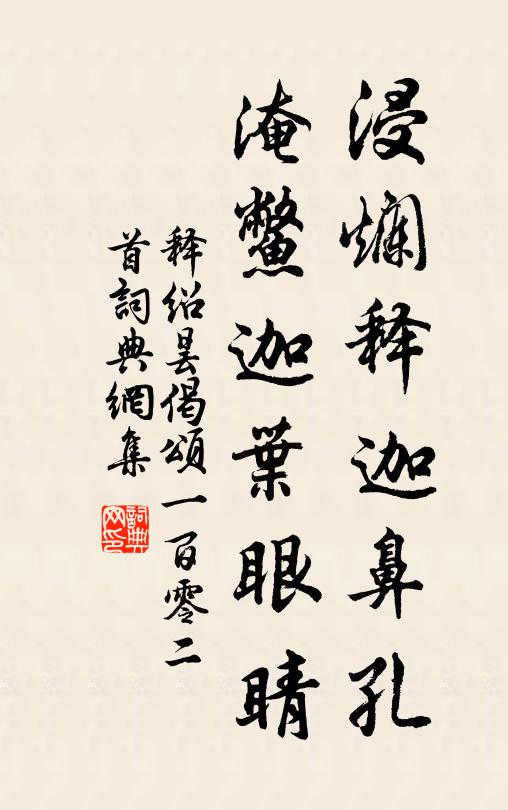 浸爛释迦鼻孔
淹鱉迦葉眼睛
释绍昙偈颂一百零二
首詞典網集
詞典网印